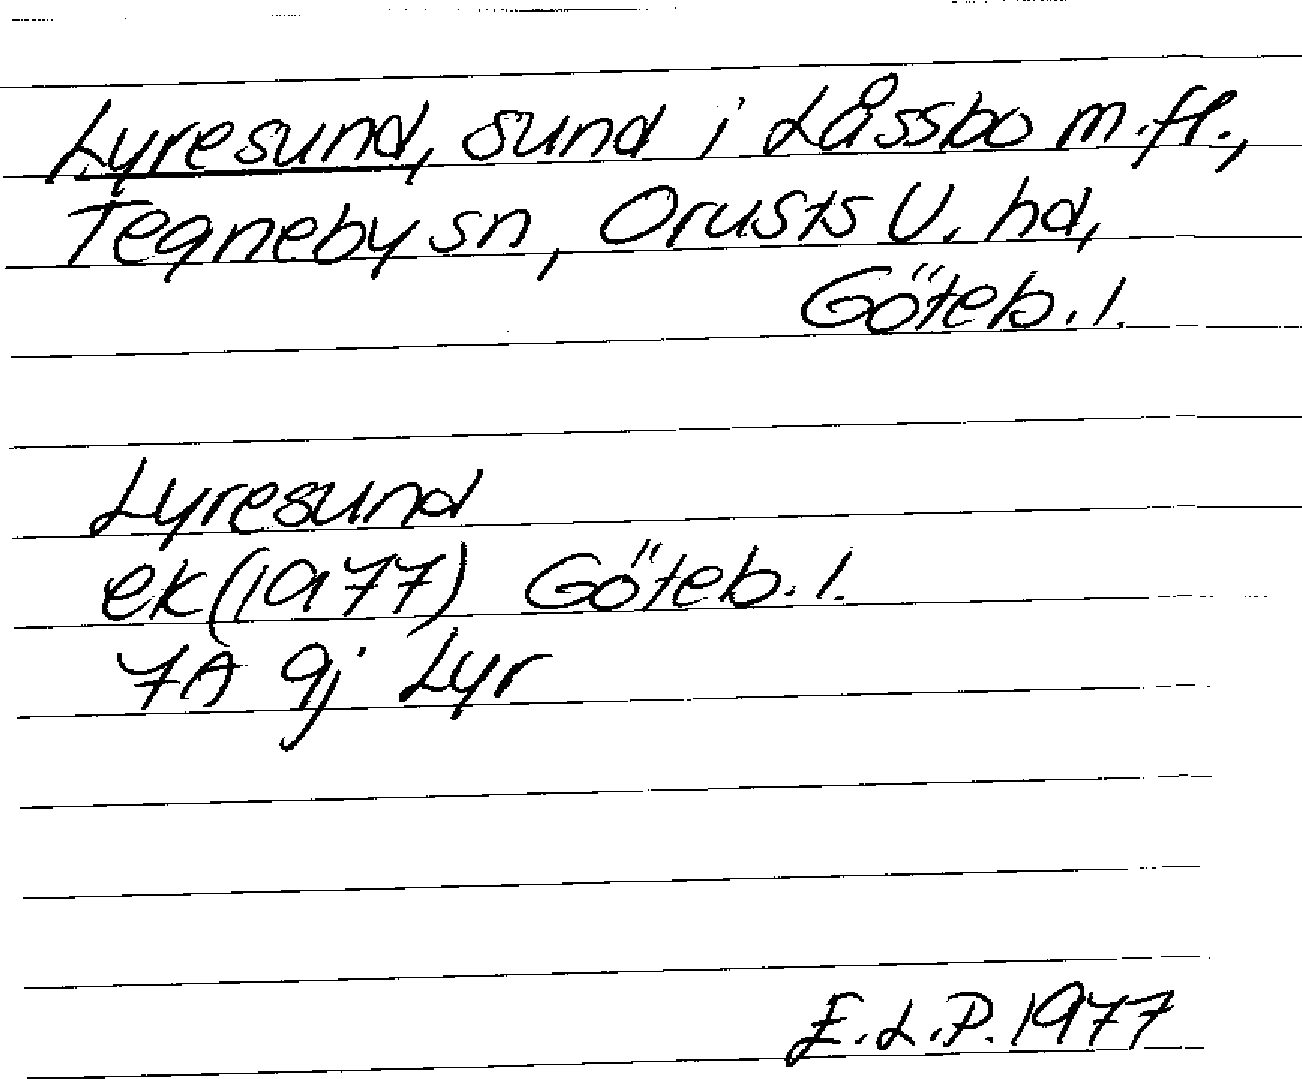 Lyresund, sund i Låssbo m.fl.,
Tegneby sn, Orusts V. hd,
Göteb. l.
Lyresund
ek (1977) Göteb. l.
7A 9j Lyr
E.L.P. 1977